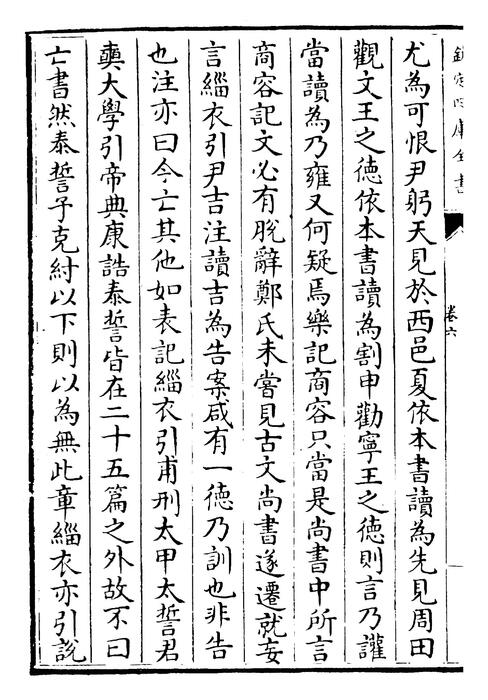 欽定四庫全書
卷六
尤為可恨尹躬天見於西邑夏依本書讀為先見周田
觀文王之德依本書讀為割申勸寧王之德則言乃讙
當讀為乃雍又何疑焉樂記商容只當是尚書中所言
商容記文必有脫辭鄭氏未嘗見古文尚書遂遷就妄
言緇衣引尹吉注讀吉為告案咸有一德乃訓也非告
也注亦曰今亡其他如表記緇衣引甫刑太甲太誓君
奭大學引帝典康誥泰誓皆在二十五篇之外故不曰
亡書然泰誓予克紂以下則以為無此章緇衣亦引說